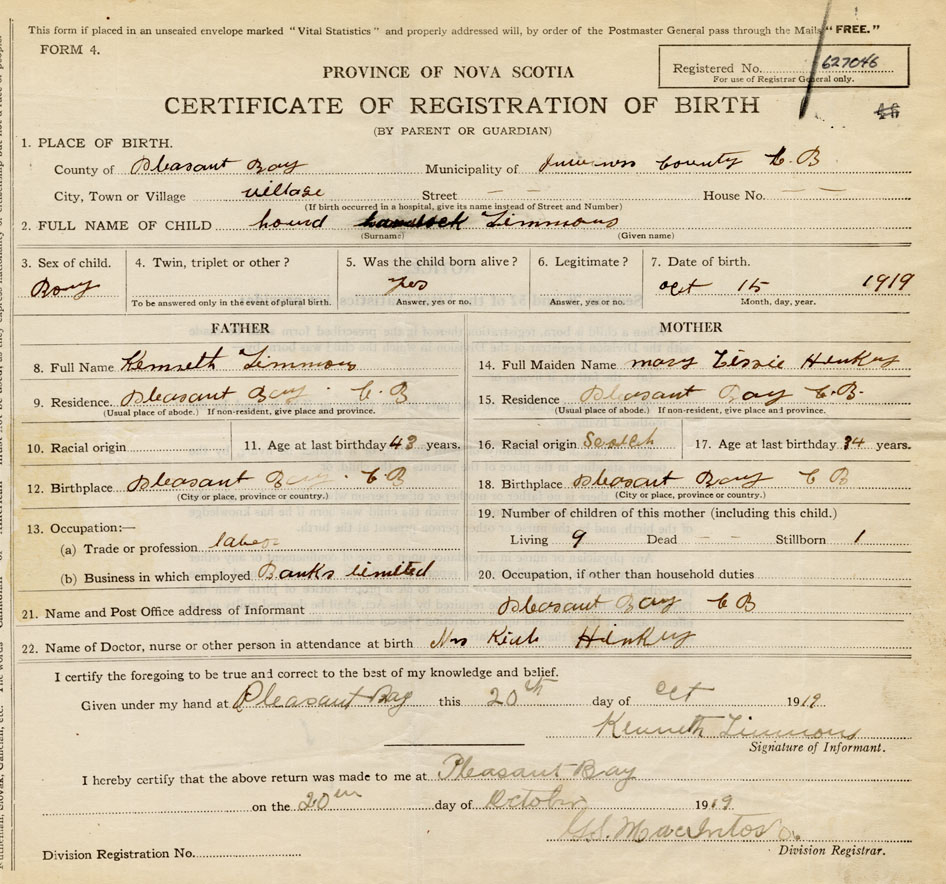 This form if placed in an unsealed envelope marked "Vital Statistics" and properly addressed will, by order of the Postmaster General pass through the Mails "FREE."
FORM 4.
Registered No. 627046
For use of Registrar General only.
PROVINCE OF NOVA SCOTIA
CERTIFICATE OF REGISTRATION OF BIRTH
(BY PARENT OR GUARDIAN)
1. PLACE OF BIRTH.
County of Pleasant Bay Municipality of County C. B
City, Town or Village village Street — — House No. — —
(If birth occurred in a hospital, give its name instead of Street and Number)
2. FULL NAME OF CHILD Timmons
(Surname) (Given name)
3. Sex of child. 4. Twin, triplet or other? 5. Was the child born alive? 6. Legitimate? 7. Date of birth.
Boy yes oct 15 1919
To be answered only in the event of plural birth. Answer, yes or no. Answer, yes or no. Month, day, year.
FATHER MOTHER
8. Full Name Kenneth Timmons 14. Full Maiden Name mary Tissie Hinkey
9. Residence. Pleasant Bay C. B 15. Residence Pleasant Bay C. B.
(Usual place of abode.) If non-resident, give place and province. (Usual place of abode.) If non-resident, give place and province.
10. Racial origin 11. Age at last birthday 43 years. 16. Racial origin Scotch 17. Age at last birthday 34 years.
12. Birthplace Pleasant Bay. C. B 18. Birthplace Pleasant Bay C B
(City or place, province or country.) (City or place, province or country.)
13. Occupation:— 19. Number of children of this mother (including this child.)
(a) Trade or profession labor Living 9 Dead — — Stillborn 1
(b) Business in which employed Banks limited 20. Occupation, if other than household duties
21. Name and Post Office address of Informant Pleasant Bay C B
22. Name of Doctor, nurse or other person in attendance at birth Mrs Hinkey
I certify the foregoing to be true and correct to the best of my knowledge and belief.
Given under my hand at Pleasant Bay this 20th day of Oct 1919
Kenneth Timmons
Signature of Informant.
I hereby certify that the above return was made to me at Pleasant Bay
on the 20th day of October 1919
MacIntosh
Division Registrar.
Division Registration No.